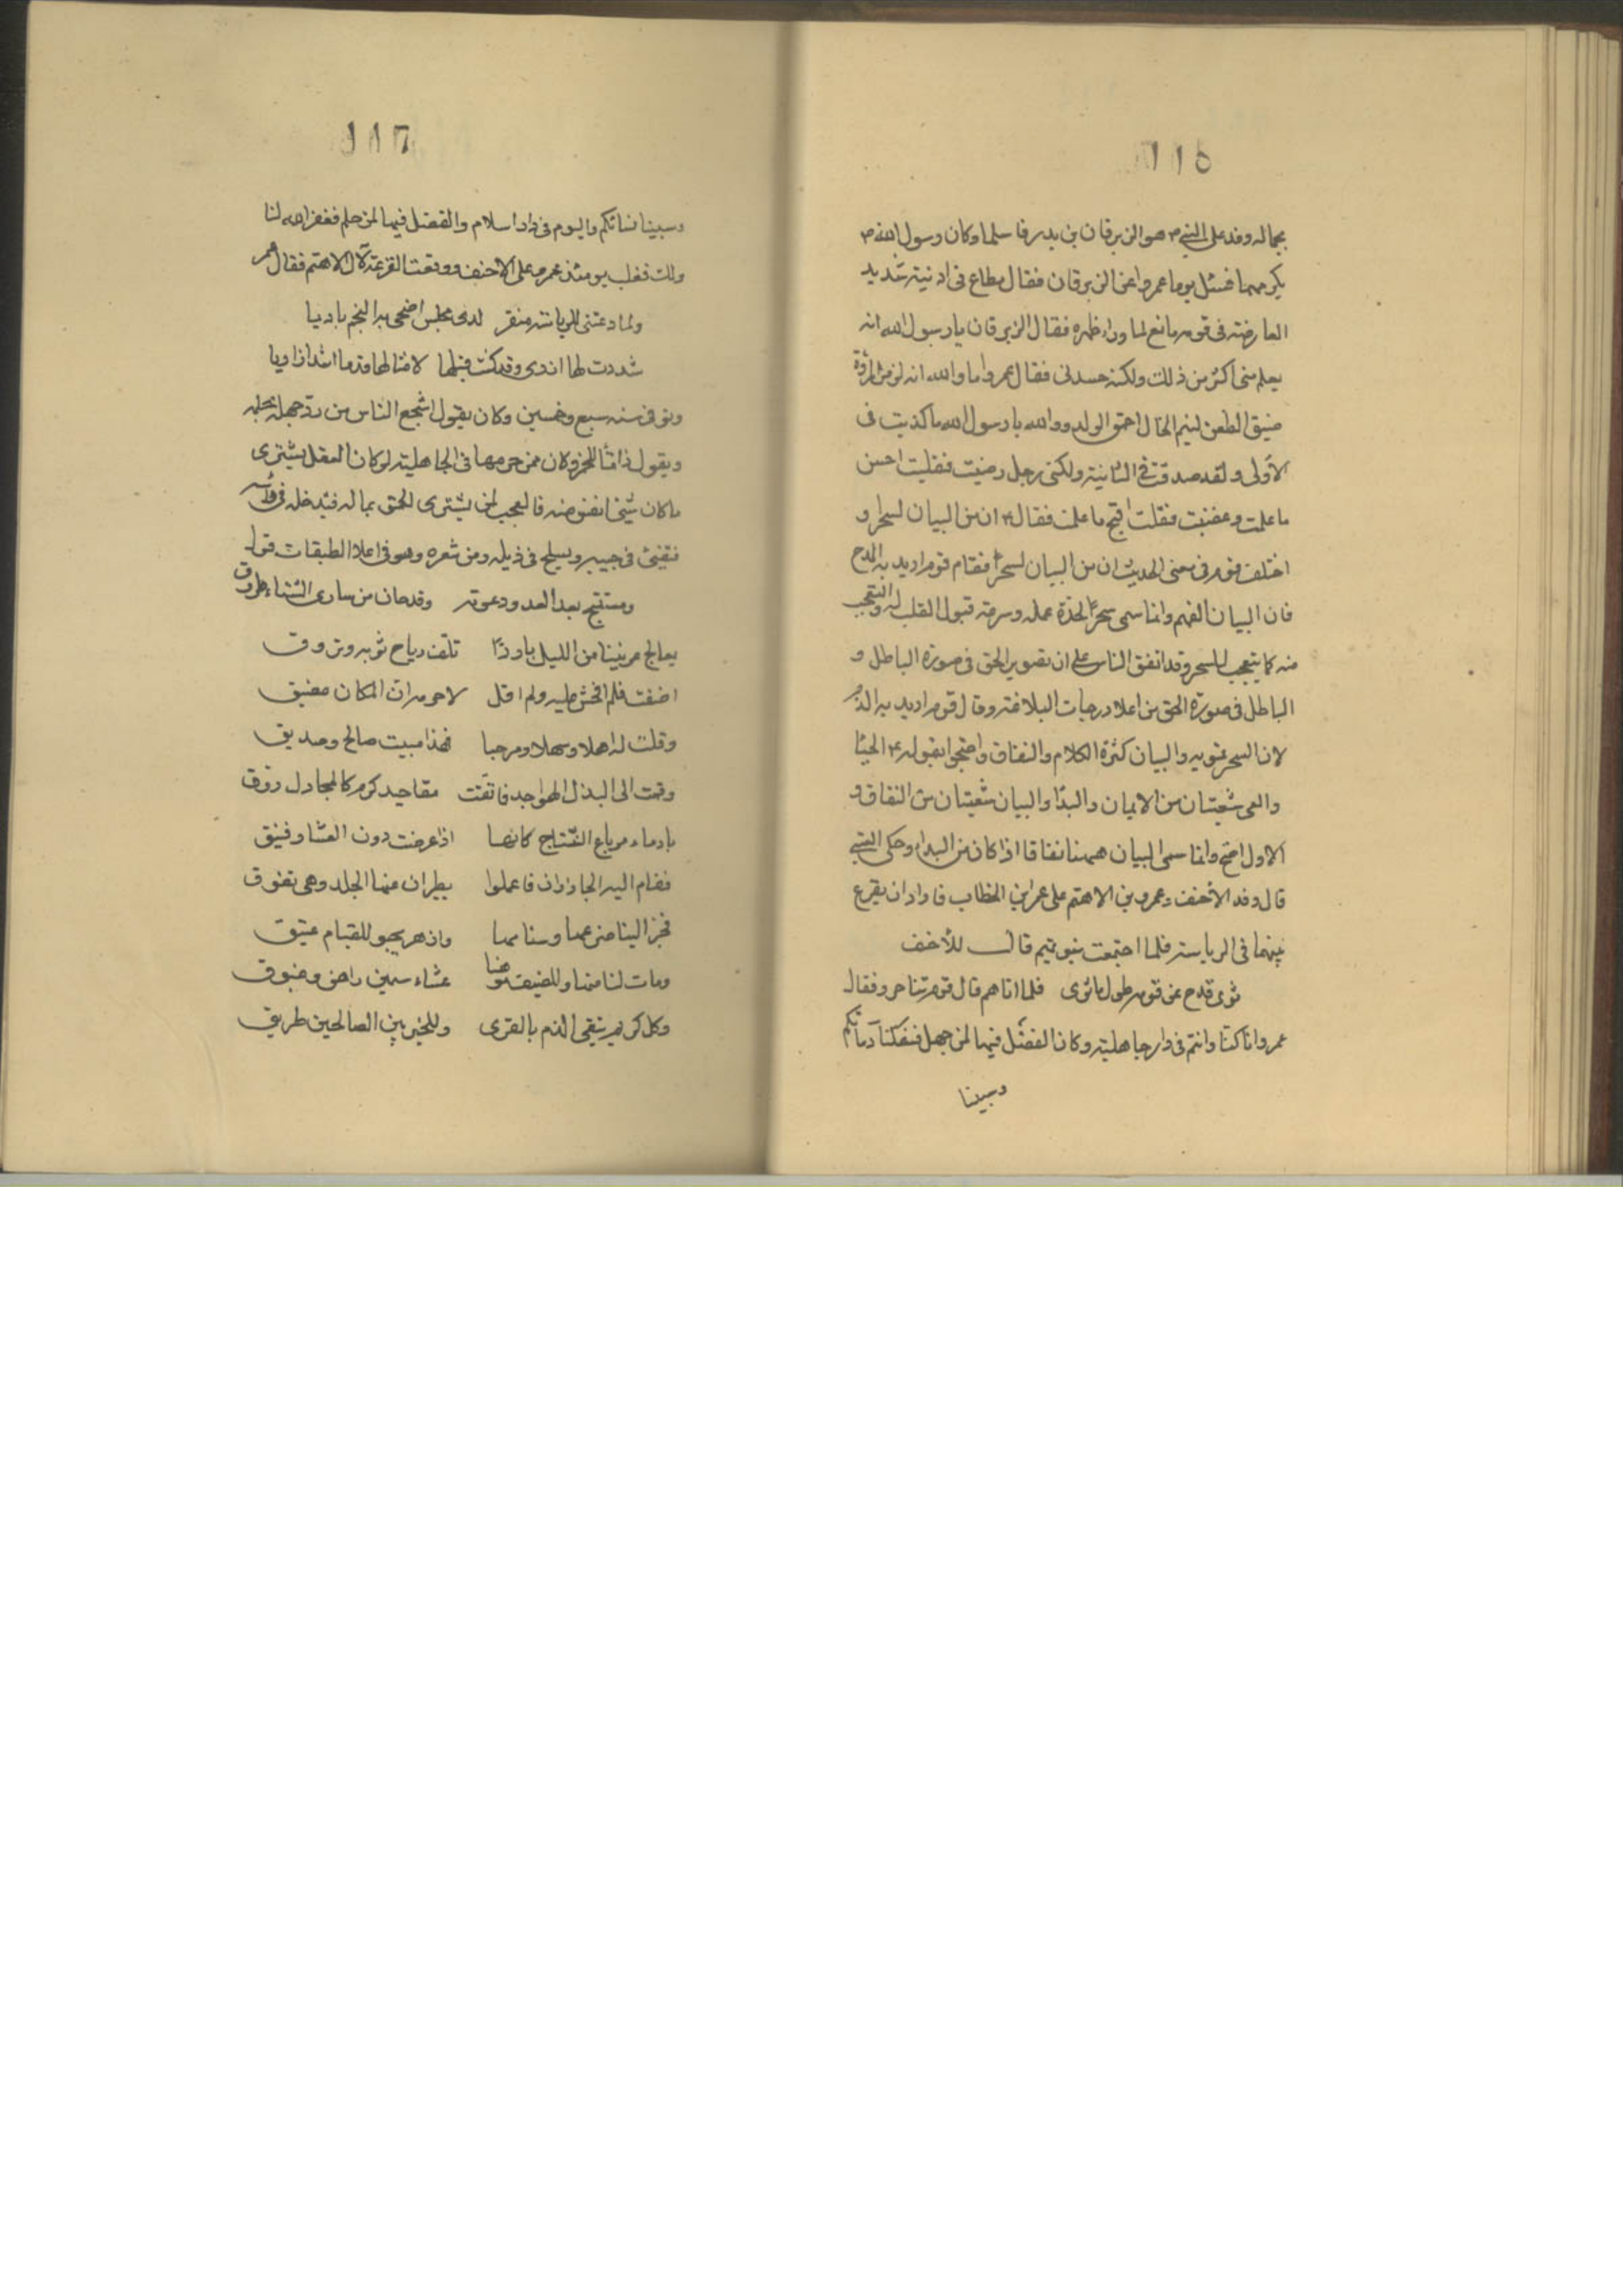 ١١٥
بجماله وفد على النبي ص هو الزبرقان بن بدر فاسلما وكان رسول الله ص
يكرمهما فسئل يوما عمروا عن الزبرقان فقال مطاع فى ادنيته شديد
العارضته فى قومه مانع لما وراء ظهره فقال الزبرقان يا رسول الله انه
يعلم منى اكثر من ذلك ولكنه حسدنى فقال عمروا ما والله انه لزمر المروّة
ضيق الطعن لئيم الخال احمق الولد ووالله يا رسول الله ما كذبت فى
الاولى ولقد صدقت فى الثانية ولكنى رجل رضيت فقلت احسن
ما علمت وغضبت فقلت اقبح ما علمت فقال ٤ ان من البيان لسحرا و
اختلف قوم فى معنى الحديث ان من البيان لسحرًا فقام قوم اريد به المدح
فان البيان الفهم وانما سمى سحرًا لحدّة عمله وسرعة قبول القلب له والتعجب
منه كما يتعجب للسحر وقد اتفق الناس على ان تصوير الحق فى صورة الباطل و
الباطل فى صورة الحق من اعلا درجات البلاغته وقال قوم اريد به الذم
لان السحر تمويه والبيان كثرة الكلام والنفاق واحتجوا بقوله ٤ الحيا
والعى شعبتان من الايمان والبذا والبيان شعبتان من النفاق و
الاول اصح وانما سمى البيان ههنا نفاقا اذا كان من البذاء وحكى العتبى
قال وفد الاخنف وعمرو بن الاهتم على عمر ابن الخطاب فاراد ان يقرع
بينهما فى الرياسته فلما اجتمعت بنو تميم قال للأخنف
ثوى قدح عن قومه طول ما ثوى فلما اتاهم قال قوم تناحروا فقال
عمروا انا كنا وانتم فى دار جاهلية وكان الفضل فيها لمن جهل فسفكنا دمائكم
وسبينا
١١٦
وسبينا نسائكم واليوم فى دار اسلام والفضل فيها لمن حلم فغفر الله لنا
ولك فغلب يومئذ عمرو على الاخنف ووقعت القرعة لآل الاهتم فقال عمر
ولما دعتنى للرياسته منقر لدى مجلس اضحى به النجم باديا
شددت لها ازرى وقد كنت قبلها لامثالها قدما اشد ازاريا
وتوفى سنه سبع وخمسين وكان يقول اشجع الناس من ردّ جهله بحلمه
ويقول ذامّا للخمر وكان ممن حرمها فى الجاهلية لو كان العقل يشترى
ما كان شئ انفق منه فالعجب لمن يشترى الحمق بماله فيدخله فى رأسه
فيقئ فى جيبه ويسلح فى ذيله ومن شعره وهو فى اعلا الطبقات قوله
ومستنبح بعد الهدو دعوته وقد حان من سارى الشتاء طروق
يعالج عرنينا من الليل باردًا تلف رياح ثوبه وبروق
اضفت فلم افحش عليه ولم اقل لاحرمه ان المكان مضيق
وقلت له اهلا وسهلا ومرحبا فهذا مبيت صالح وصديق
وقمت الى البذل الهواجد فاتقت مقاحيد كرم كالمجادل روق
بادماء مرباع النتاج كانها اذا عرضت دون العشار فنيق
فقام اليه الجازران فاعملوا يطيران عنها الجلد وهى تفوق
فجر الينا ضرعها وسنامها وازهر يحبو للقيام عتيق
وبات لنا منها وللضيف موهنا عشاء سمين راهن وغبوق
وكل كريم يتقى الذم بالقرى وللخير بين الصالحين طريق